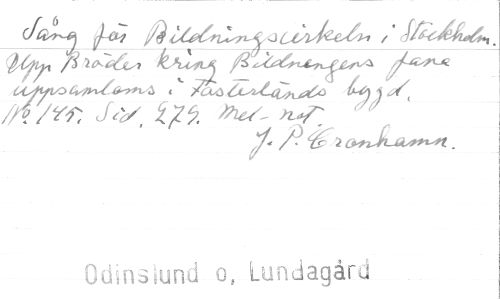 Sång för Bildningscirkeln i Stockholm.
Upp Bröder kring Bildningens fana
uppsamloms i Fosterlands bygd.
No. 145. Sid. 279. Mel- not.
J. P. Cronhamn.
Odinslund o, Lundagård